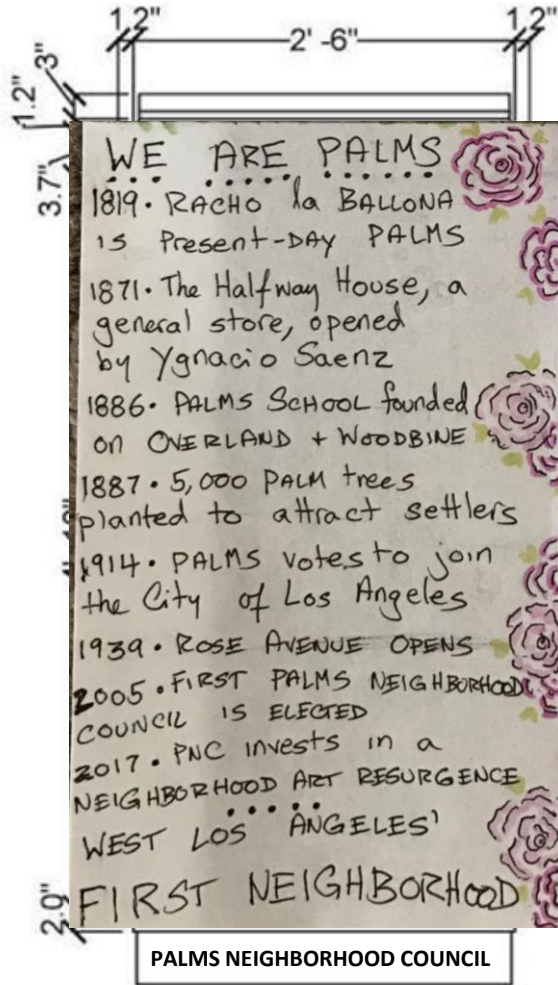 1.2"
1.2"
2' -6"
3"
1.2"
3.7"
WE ARE PALMS
1819. RACHO la BALLONA
is Present-DAY PALMS
1871. The Halfway House, a
general store, opened
by Ygnacio Saenz
1886. PALMS SCHOOL founded
on OVERLAND + WOODBINE
1887. 5,000 PALM trees
planted to attract settlers
1914. PALMS votes to join
the City of Los Angeles
1939. ROSE AVENUE OPENS
2005. FIRST PALMS NEIGHBORHOOD
COUNCIL IS ELECTED
2017. PNC invests in a
NEIGHBORHOOD ART RESURGENCE
WEST LOS ANGELES'
FIRST NEIGHBORHOOD
2.0"
PALMS NEIGHBORHOOD COUNCIL